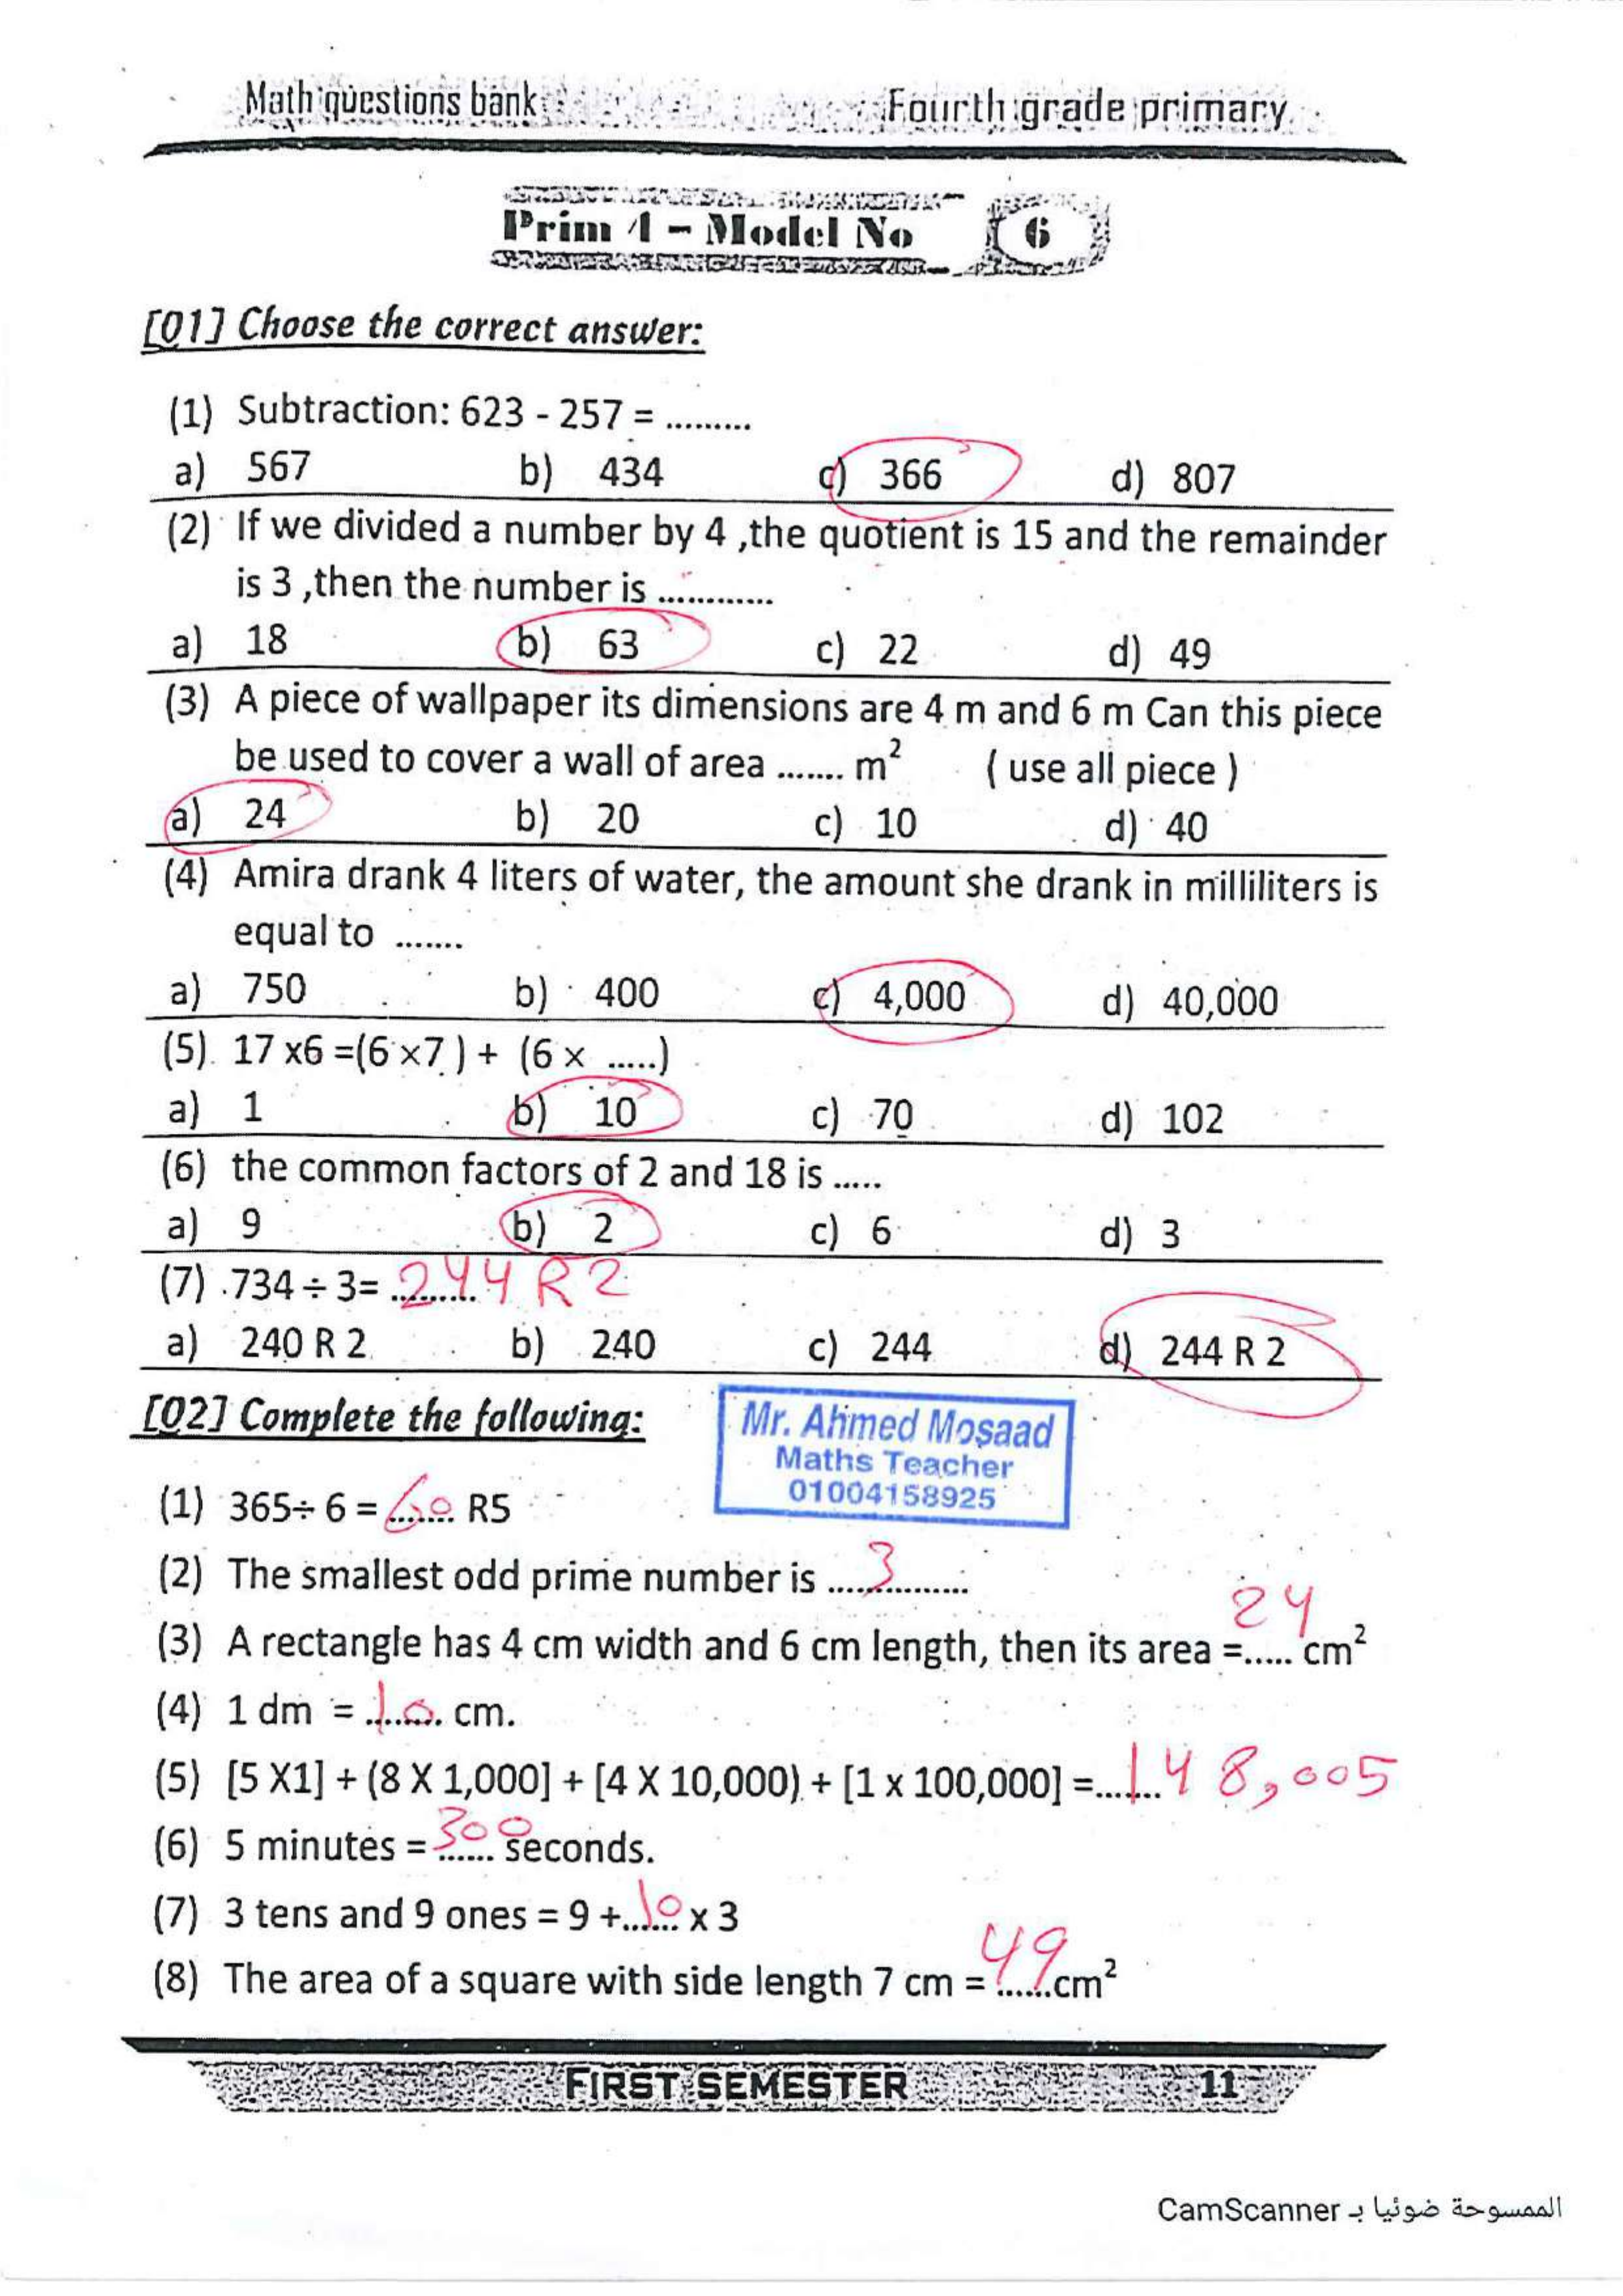 Math questions bank Fourth grade primary
Prim 4 - Model No 6
[Q1] Choose the correct answer:
(1) Subtraction: 623 - 257 = .........
a) 567 b) 434 c) 366 d) 807
(2) If we divided a number by 4 ,the quotient is 15 and the remainder
is 3 ,then the number is ............
a) 18 b) 63 c) 22 d) 49
(3) A piece of wallpaper its dimensions are 4 m and 6 m Can this piece
be used to cover a wall of area ....... m² ( use all piece )
a) 24 b) 20 c) 10 d) 40
(4) Amira drank 4 liters of water, the amount she drank in milliliters is
equal to .......
a) 750 b) 400 c) 4,000 d) 40,000
(5) 17 x6 =(6 ×7 ) + (6 × .....)
a) 1 b) 10 c) 70 d) 102
(6) the common factors of 2 and 18 is .....
a) 9 b) 2 c) 6 d) 3
(7) 734 ÷ 3= 244 R 2
a) 240 R 2 b) 240 c) 244 d) 244 R 2
[Q2] Complete the following:
Mr. Ahmed Mosaad
Maths Teacher
01004158925
(1) 365÷ 6 = 60 R5
(2) The smallest odd prime number is ..... 3 .....
(3) A rectangle has 4 cm width and 6 cm length, then its area =..... 24 cm²
(4) 1 dm = 10 cm.
(5) [5 X1] + (8 X 1,000] + [4 X 10,000) + [1 x 100,000] = 148,005
(6) 5 minutes = 300 seconds.
(7) 3 tens and 9 ones = 9 + 10 x 3
(8) The area of a square with side length 7 cm = 49 cm²
FIRST SEMESTER 11
الممسوحة ضوئيا بـ CamScanner